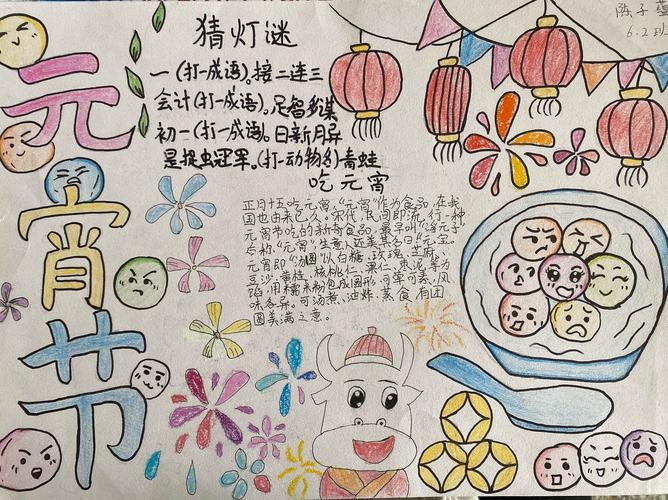 陈子萱
6.2班
元宵节
猜灯谜
一(打一成语)。接二连三
会计(打一成语)。足智多谋
初一(打一成语)。日新月异
是捉虫冠军。(打一动物名)青蛙
吃元宵
正月十五吃元宵,“元宵”作为食品,在我
国也由来已久。宋代,民间即流行一种
元宵节吃的新奇食品,最早叫“浮元子”
后称“元宵”,生意人还美其名曰“元宝”。
元宵即“汤圆”以白糖、玫瑰、芝麻、
豆沙、黄桂、核桃仁、果仁、枣泥等为
馅,用糯米粉包成圆形,可荤可素,风
味各异。可汤煮、油炸、蒸食,有团
圆美满之意。